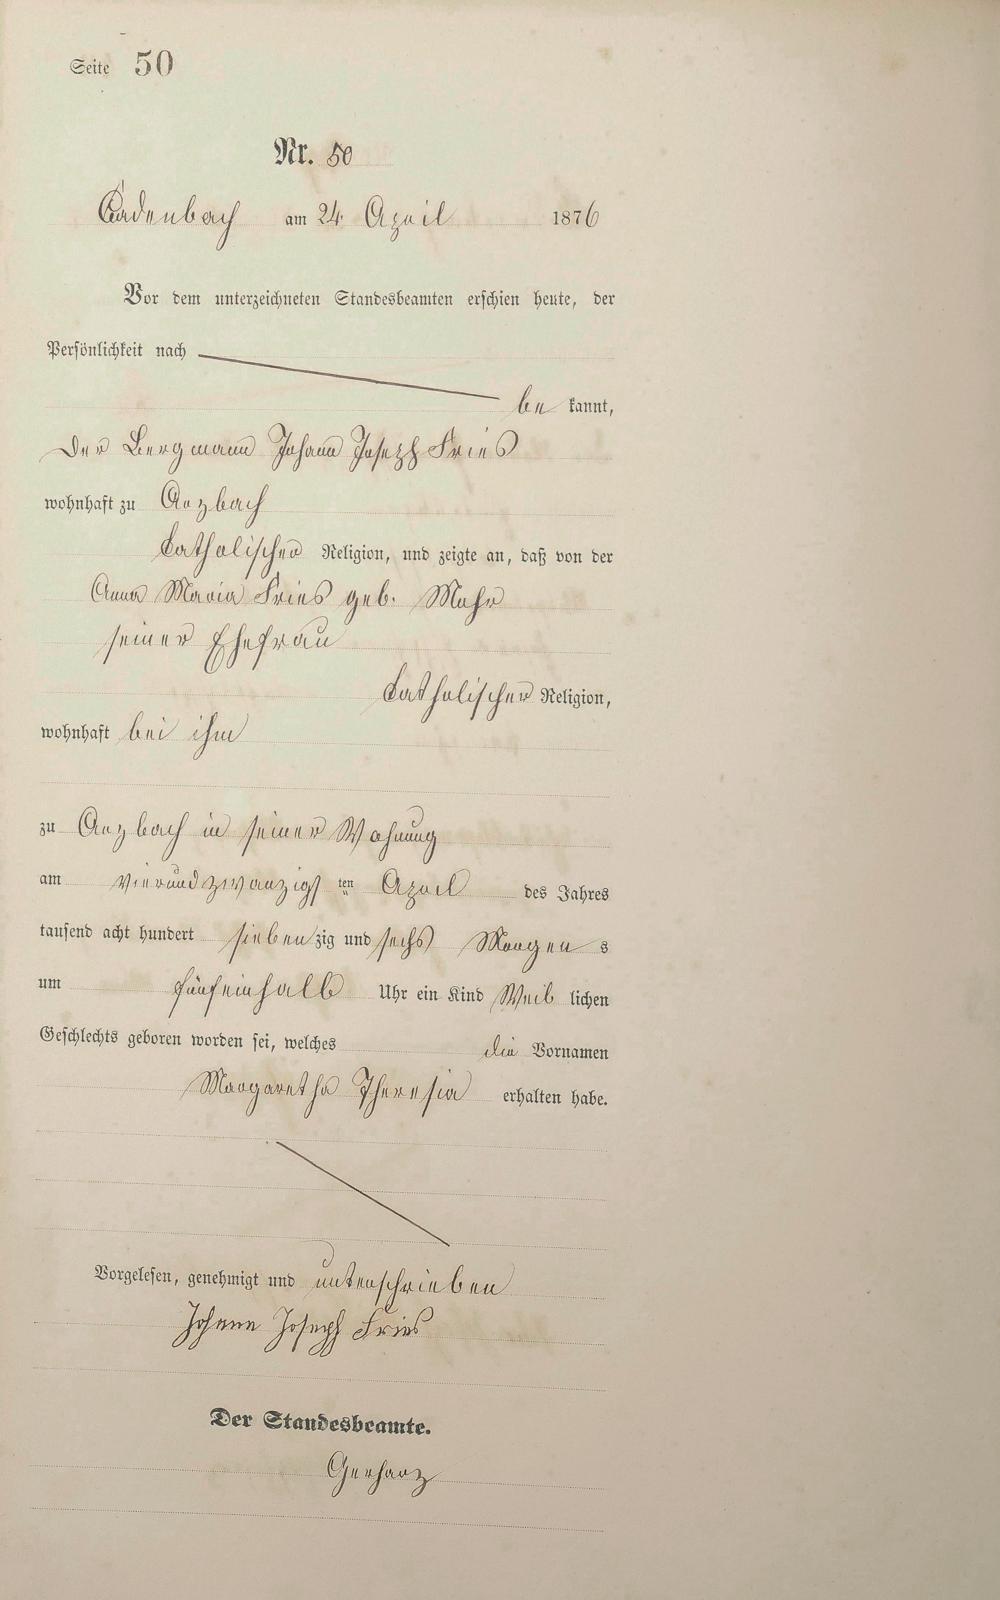 Seite 50
Nr. 50
Cadenbach am 24. April 1876
Vor dem unterzeichneten Standesbeamten erschien heute, der
Persönlichkeit nach
be kannt,
der Bergmann Johann Joseph Fries
wohnhaft zu Arzbach
katholischer Religion, und zeigte an, daß von der
Anna Maria Fries geb. Mohr
seiner Ehefrau
katholischer Religion,
wohnhaft bei ihm
zu Arzbach in seiner Wohnung
am vierundzwanzigsten April des Jahres
tausend acht hundert siebenzig und sechs Morgens
um fünfeinhalb Uhr ein Kind Weiblichen
Geschlechts geboren worden sei, welches die Vornamen
Margaretha Theresia erhalten habe.
Vorgelesen, genehmigt und unterschrieben
Johann Joseph Fries
Der Standesbeamte.
Gerharz